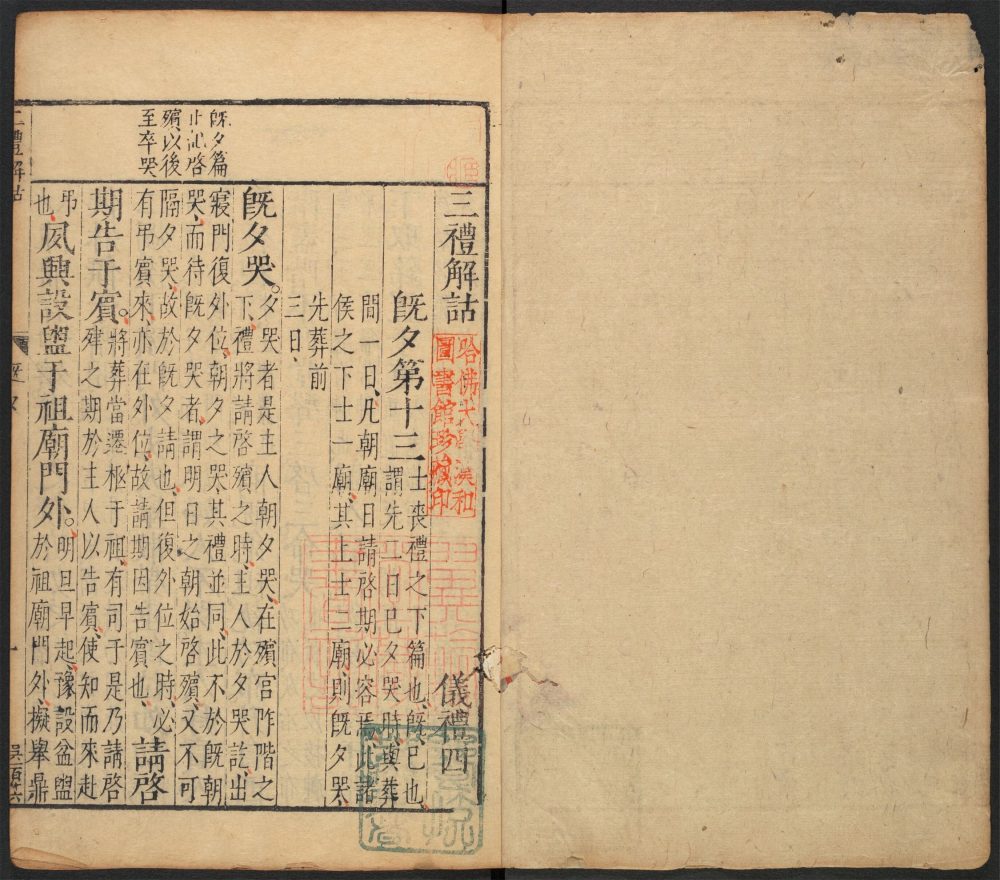 三禮解詁 儀禮四
哈佛大學漢和
圖書館珍藏印
旣夕第十三
士喪禮之下篇也、旣、巳也、
謂先二日巳夕哭時、與葬
間一日、凡朝廟日請啓期必容焉、此諸
侯之下士一廟、其上士二廟、則旣夕哭、
先葬前
三日、
旣夕篇
止記啓
殯以後
至卒哭
旣夕哭。
夕哭者是主人朝夕哭、在殯宮阼階之
下、禮將請啓殯之時、主人於夕哭訖、出
寢門復外位、朝夕之哭、其禮並同、此不於旣朝
哭、而待旣夕哭者、謂明日之朝始啓殯、又不可
隔夕哭、故於旣夕請也、但復外位之時、必
有弔賓來、亦在外位、故請期因告賓也、
請啓
期告于賓。
將葬當遷柩于祖、有司于是乃請啓
肂之期於主人以告賓、使知而來赴
弔
也、
夙興設盥于祖廟門外。
明旦早起、豫設盆盥
於祖廟門外、擬舉鼎
三禮解詁
旣夕
一